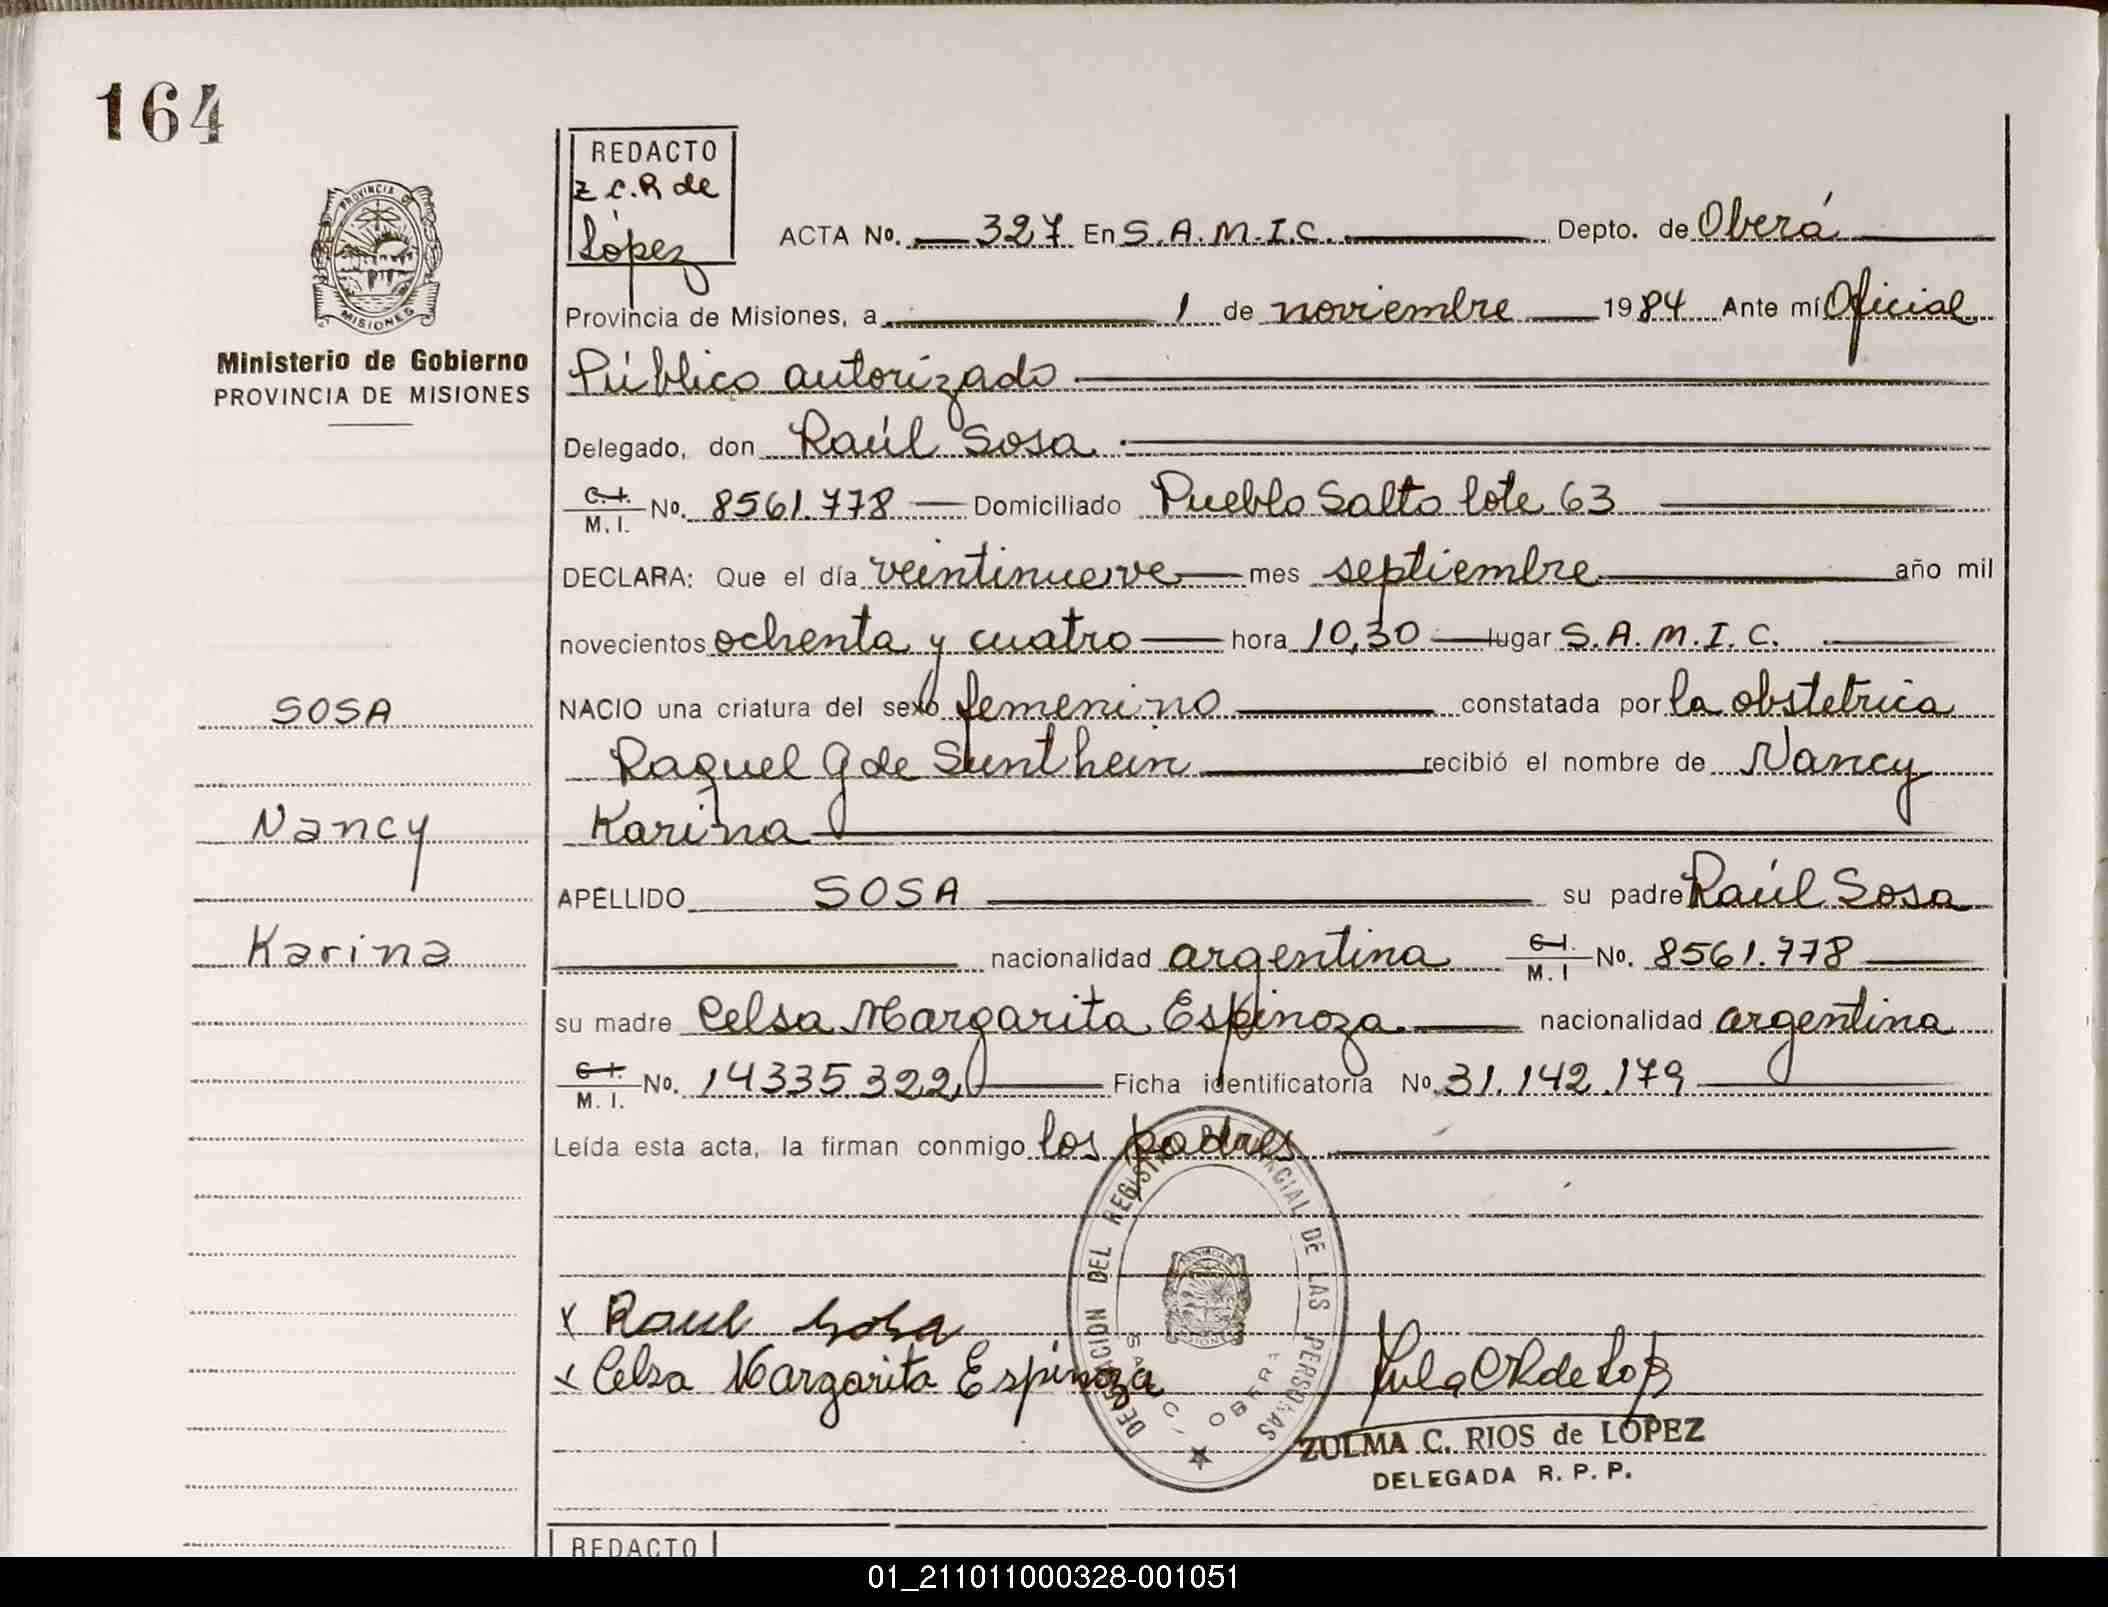 164
REDACTO
Z C.R de
López
ACTA No. 327 En S.A.M.I.C. Depto. de Oberá
Provincia de Misiones, a 1 de noviembre 1984 Ante mí Oficial
PROVINCIA DE
MISIONES
Ministerio de Gobierno
PROVINCIA DE MISIONES
Público autorizado
Delegado, don Raúl Sosa
C.I. M.I. No. 8561.778 Domiciliado Pueblo Salto lote 63
DECLARA: Que el día veintinueve mes septiembre año mil
novecientos ochenta y cuatro hora 10,30 lugar S.A.M.I.C.
SOSA
NACIO una criatura del sexo femenino constatada por la obstetrica
Raquel G de Sunthein recibió el nombre de Nancy
Nancy
Karina
APELLIDO SOSA su padre Raúl Sosa
Karina
nacionalidad argentina C.I. M.I No. 8561.778
su madre Celsa Margarita Espinoza nacionalidad argentina
C.I. M.I. No. 14335.322 Ficha identificatoria No. 31.142.179
Leída esta acta, la firman conmigo los padres
DELEGACION DEL REGISTRO PROVINCIAL DE LAS PERSONAS
SAMIC - OBERA
x Raul Sosa
x Celsa Margarita Espinoza
ZULMA C. RIOS de LOPEZ
DELEGADA R. P. P.
REDACTO
01_211011000328-001051